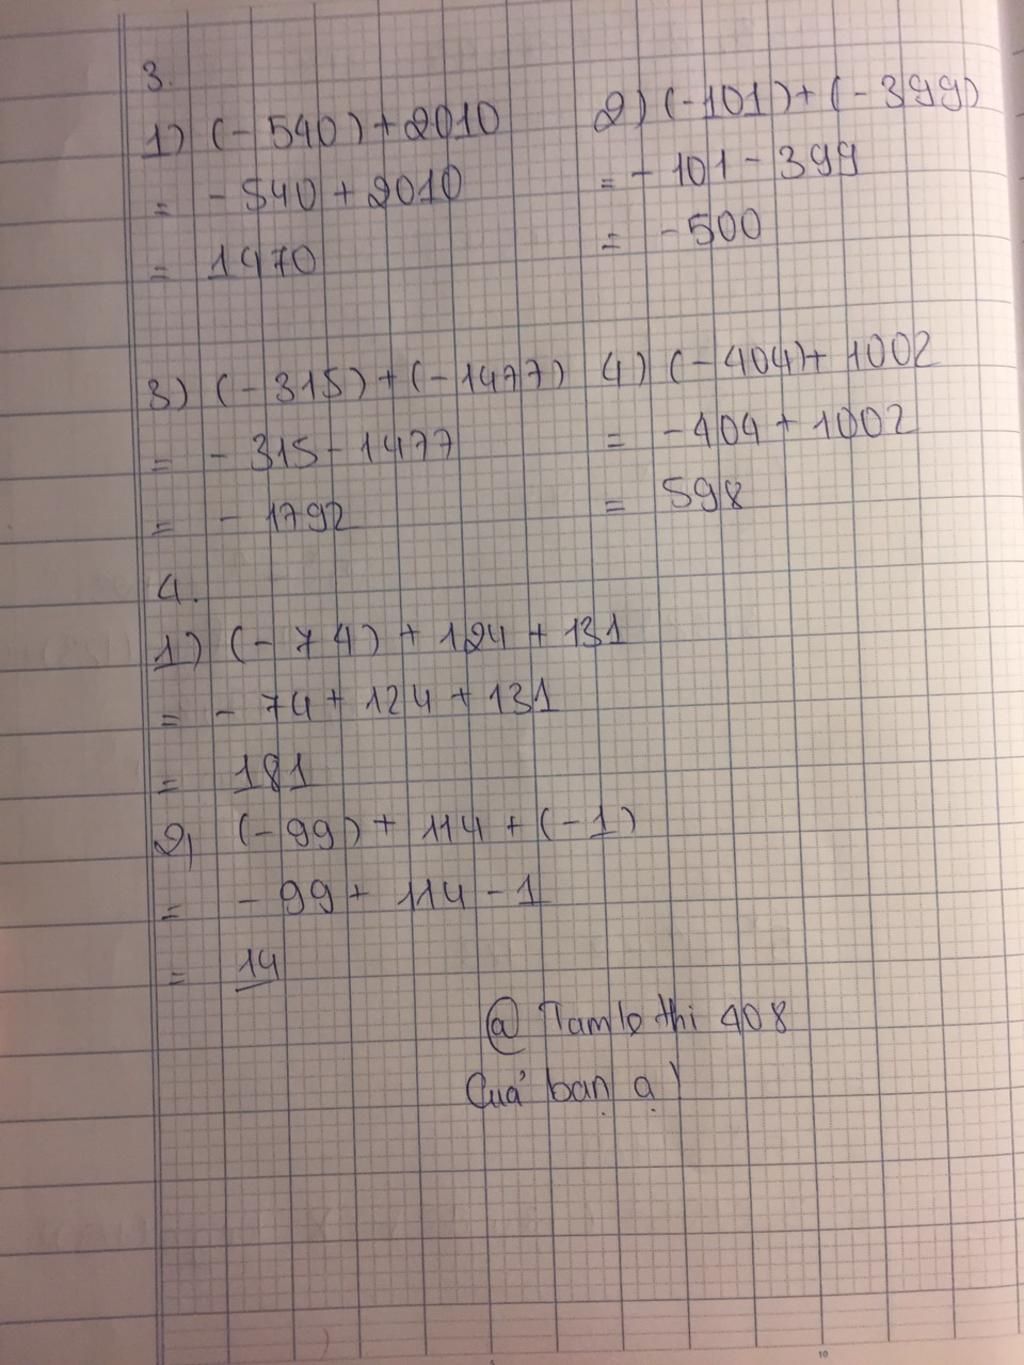 3.
1) (-540)+2010
= -540+2010
= 1470
2) (-101)+(-399)
= -101-399
= -500
3) (-315)+(-1477)
= -315-1477
= -1792
4) (-404)+1002
= -404+1002
= 598
4.
1) (-74)+124+131
= -74+124+131
= 181
2, (-99)+114+(-1)
= -99+114-1
= 14
@ Tamlo thi 408
Của bạn ạ!
10